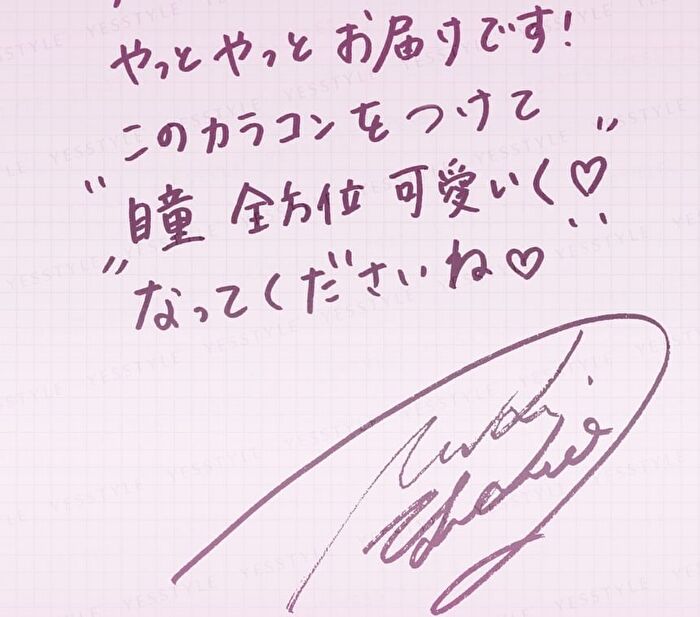 やっとやっとお届けです!
このカラコンをつけて
"瞳 全方位 可愛いく♡"
"なってくださいね♡
YESSTYLE